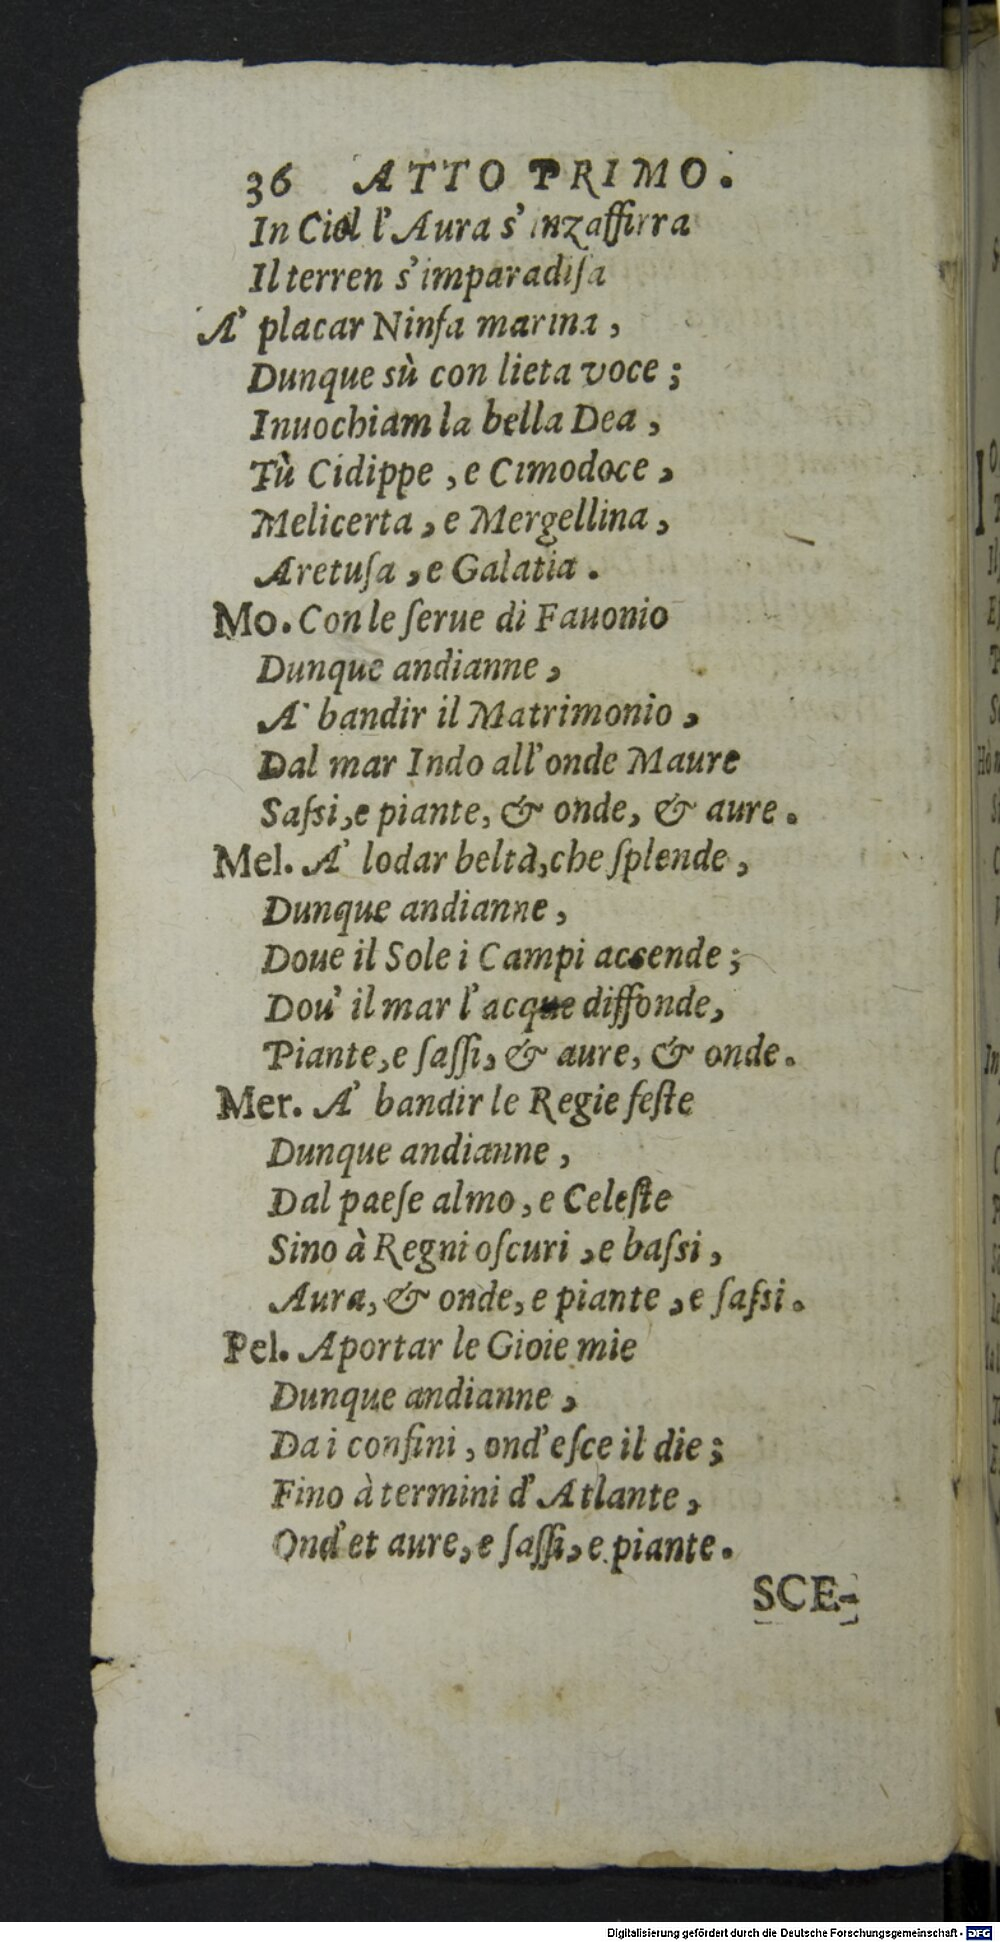 36 ATTO PRIMO.
In Ciel l'Aura s'inzaffirra
Il terren s'imparadiſa
A' placar Ninfa marina,
Dunque sù con lieta voce;
Inuochiam la bella Dea,
Tù Cidippe, e Cimodoce,
Melicerta, e Mergellina,
Aretuſa, e Galatia.
Mo. Con le ſerue di Fauonio
Dunque andianne,
A' bandir il Matrimonio,
Dal mar Indo all'onde Maure
Saſsi, e piante, & onde, & aure.
Mel. A' lodar beltà, che ſplende,
Dunque andianne,
Doue il Sole i Campi accende;
Dou' il mar l'acque diffonde,
Piante, e ſaſſi, & aure, & onde.
Mer. A' bandir le Regie feſte
Dunque andianne,
Dal paeſe almo, e Celeſte
Sino à Regni oſcuri, e baſsi,
Aura, & onde, e piante, e ſaſsi.
Pel. Aportar le Gioie mie
Dunque andianne,
Da i confini, ond'eſce il die;
Fino à termini d'Atlante,
Ond'et aure, e ſaſſi, e piante.
SCE-
Digitalisierung gefördert durch die Deutsche Forschungsgemeinschaft - DFG